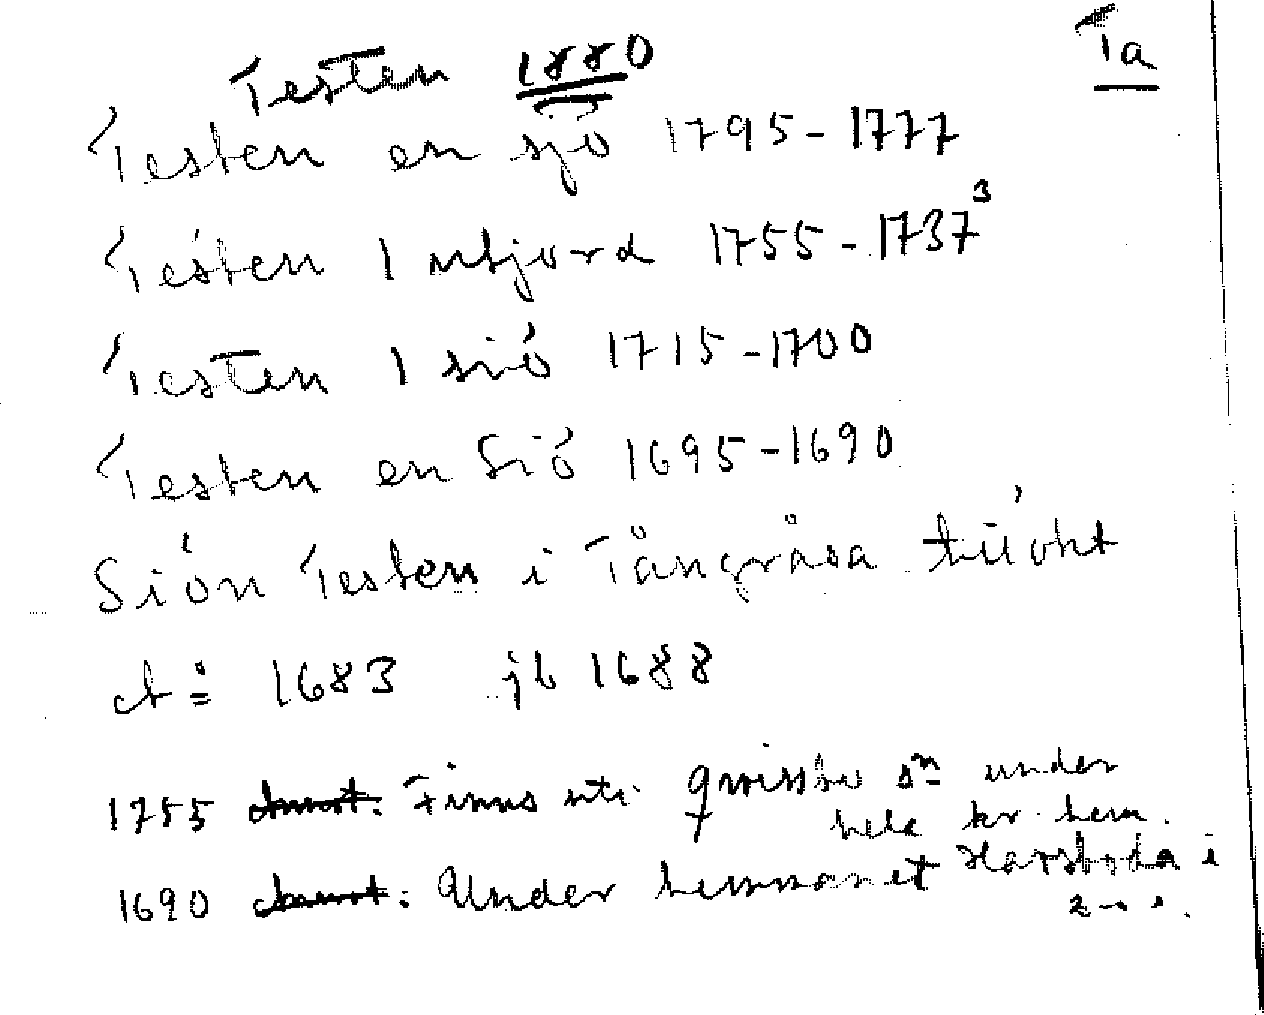 Testen 1880
Ta
Testen en sjö 1795-1777
Testen 1 utjord 1755-1737³
Testen 1 siö 1715-1700
Testen en Siö 1695-1690
Siön Testen i Tångråsa
1683 jb 1688
1755 Finns uti under
hela kr. hem.
1690 : Under hemmanet Harsboda i